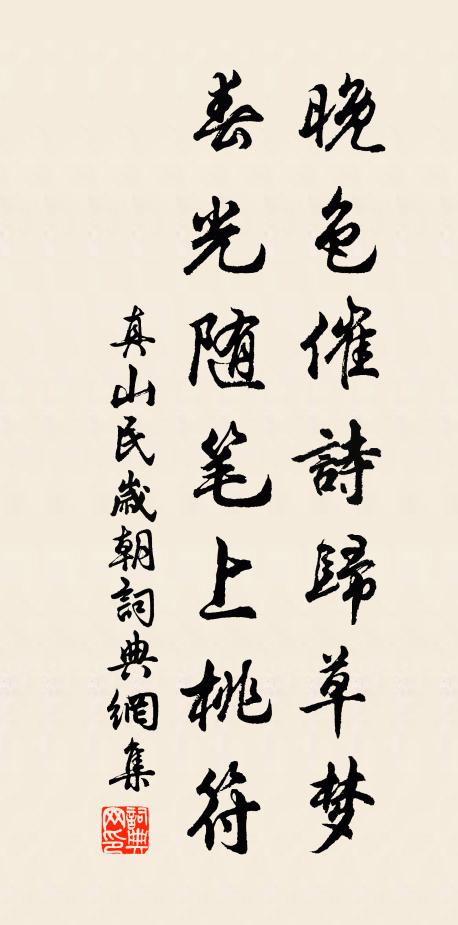 晚色催詩歸草梦
春光随笔上桃符
真山民歲朝詞典網集
詞典网印